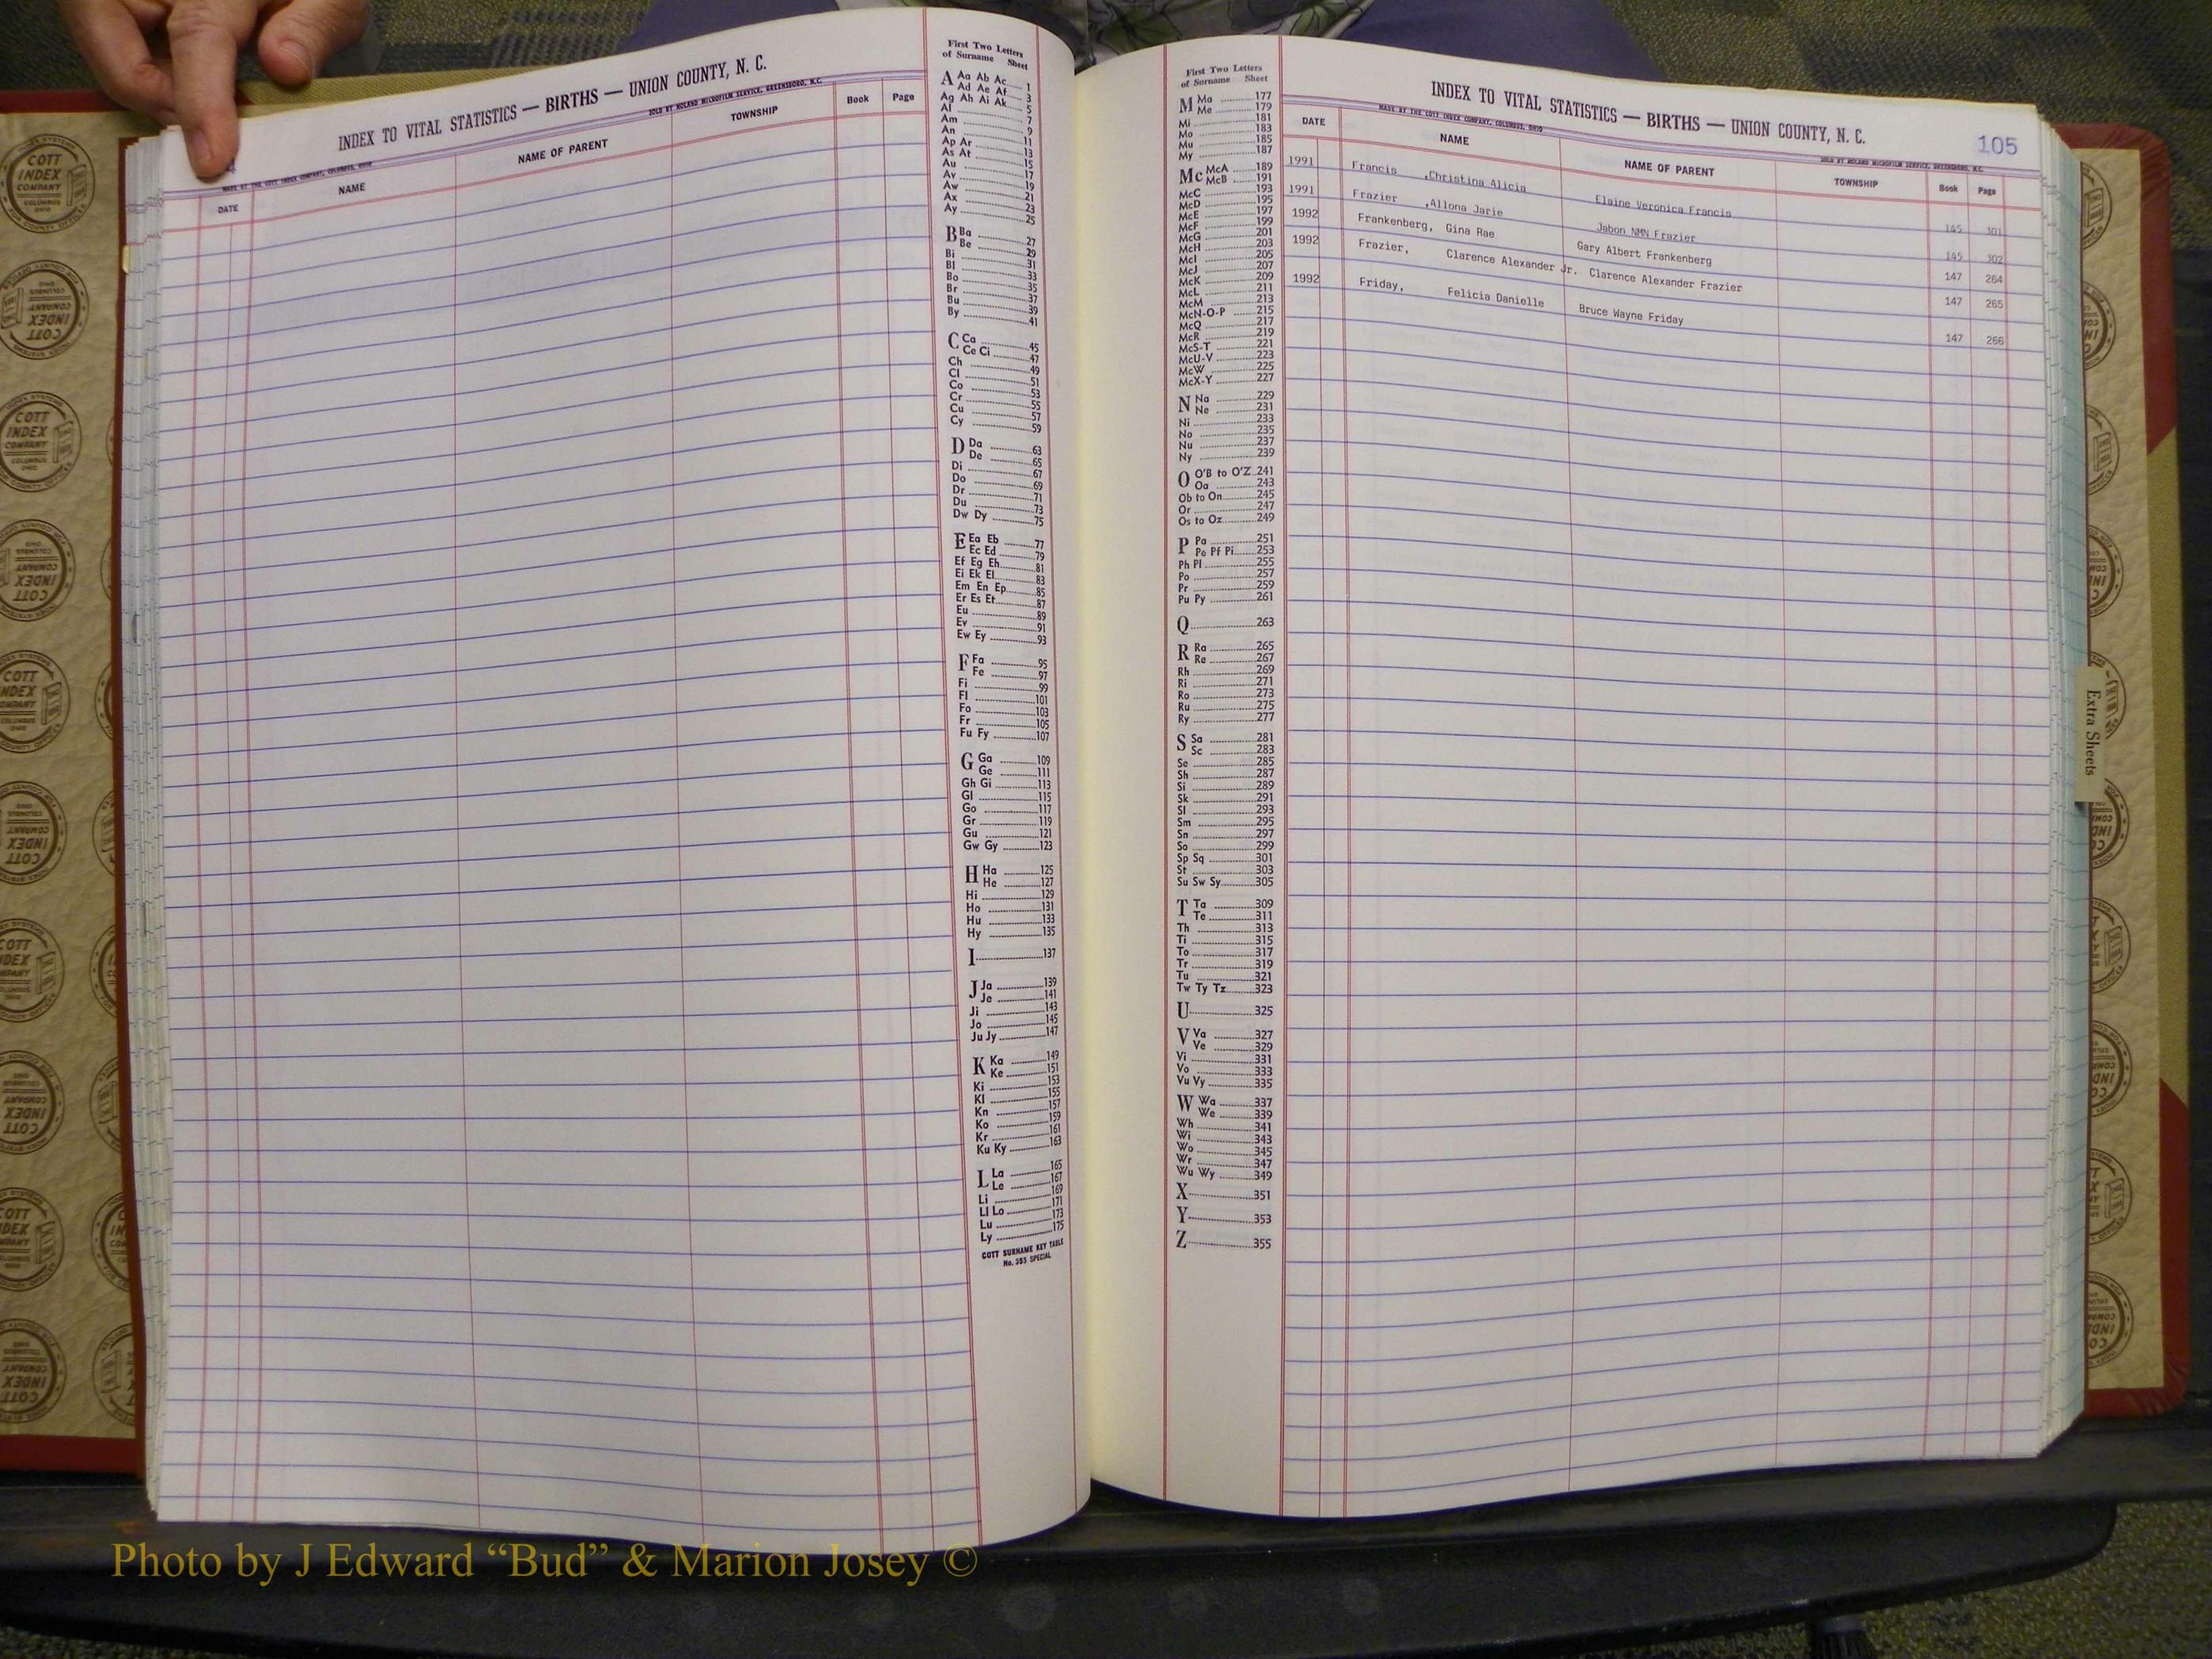 INDEX TO VITAL STATISTICS — BIRTHS — UNION COUNTY, N. C.
MADE BY THE COTT INDEX COMPANY, COLUMBUS, OHIO
SOLD BY NOLAND MICROFILM SERVICE, GREENSBORO, N.C.
DATE NAME NAME OF PARENT TOWNSHIP Book Page
First Two Letters
of Surname Sheet
A Aa Ab Ac 1
Ad Ae Af 3
Ag Ah Ai Ak 5
Al 7
Am 9
An 11
Ap Ar 13
As At 15
Au 17
Av 19
Aw 21
Ax 23
Ay 25
B Ba 27
Be 29
Bi 31
Bl 33
Bo 35
Br 37
Bu 39
By 41
C Ca 45
Ce Ci 47
Ch 49
Cl 51
Co 53
Cr 55
Cu 57
Cy 59
D Da 63
De 65
Di 67
Do 69
Dr 71
Du 73
Dw Dy 75
E Ea Eb 77
Ec Ed 79
Ef Eg Eh 81
Ei Ek El 83
Em En Ep 85
Er Es Et 87
Eu 89
Ev 91
Ew Ey 93
F Fa 95
Fe 97
Fi 99
Fl 101
Fo 103
Fr 105
Fu Fy 107
G Ga 109
Ge 111
Gh Gi 113
Gl 115
Go 117
Gr 119
Gu 121
Gw Gy 123
H Ha 125
He 127
Hi 129
Ho 131
Hu 133
Hy 135
I 137
J Ja 139
Je 141
Ji 143
Jo 145
Ju Jy 147
K Ka 149
Ke 151
Ki 153
Kl 155
Kn 157
Ko 159
Kr 161
Ku Ky 163
L La 165
Le 167
Li 169
Ll Lo 171
Lu 173
Ly 175
COTT SURNAME KEY TABLE
No. 355 SPECIAL
First Two Letters
of Surname Sheet
M Ma 177
Me 179
Mi 181
Mo 183
Mu 185
My 187
Mc McA 189
McB 191
McC 193
McD 195
McE 197
McF 199
McG 201
McH 203
McI 205
McJ 207
McK 209
McL 211
McM 213
McN-O-P 215
McQ 217
McR 219
McS-T 221
McU-V 223
McW 225
McX-Y 227
N Na 229
Ne 231
Ni 233
No 235
Nu 237
Ny 239
O O'B to O'Z 241
Oa 243
Ob to On 245
Or 247
Os to Oz 249
P Pa 251
Pe Pf Pi 253
Ph Pl 255
Po 257
Pr 259
Pu Py 261
Q 263
R Ra 265
Re 267
Rh 269
Ri 271
Ro 273
Ru 275
Ry 277
S Sa 281
Sc 283
Se 285
Sh 287
Si 289
Sk 291
Sl 293
Sm 295
Sn 297
So 299
Sp Sq 301
St 303
Su Sw Sy 305
T Ta 309
Te 311
Th 313
Ti 315
To 317
Tr 319
Tu 321
Tw Ty Tz 323
U 325
V Va 327
Ve 329
Vi 331
Vo 333
Vu Vy 335
W Wa 337
We 339
Wh 341
Wi 343
Wo 345
Wr 347
Wu Wy 349
X 351
Y 353
Z 355
INDEX TO VITAL STATISTICS — BIRTHS — UNION COUNTY, N. C.
105
MADE BY THE COTT INDEX COMPANY, COLUMBUS, OHIO
SOLD BY NOLAND MICROFILM SERVICE, GREENSBORO, N.C.
DATE NAME NAME OF PARENT TOWNSHIP Book Page
1991 Francis ,Christina Alicia Elaine Veronica Francis 145 301
1991 Frazier ,Allona Jarie Jabon NMN Frazier 145 302
1992 Frankenberg, Gina Rae Gary Albert Frankenberg 147 264
1992 Frazier, Clarence Alexander Jr. Clarence Alexander Frazier 147 265
1992 Friday, Felicia Danielle Bruce Wayne Friday 147 266
Extra Sheets
COTT
INDEX
COMPANY
COLUMBUS
OHIO
Photo by J Edward “Bud” & Marion Josey ©